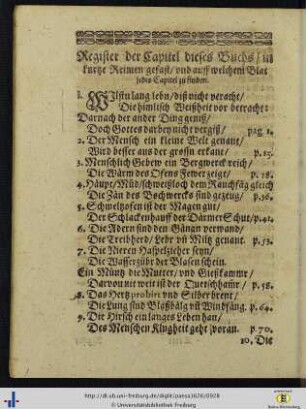 Register der Capitel dieses Buchs / in
kurtze Reimen gefast / vnd auff welchem Blat
jedes Capitel zu finden.
1. Wilstu lang lebn / diß nicht veracht /
Die himlisch Weißheit vor betracht:
Darnach der ander Ding geniß /
Doch Gottes darbey nicht vergiß / pag 1.
2. Der Mensch ein kleine Welt genant /
Wird besser aus der grossn erkant / p. 15.
3. Menschlich Gebew ein Bergwerck reich /
Die Wärm des Ofens Fewer zeigt / p. 28.
4. Häupt / Müd / schweißloch dem Rauchfäg gleich
Die Zän des Pochwercks sind gezeug / p. 36.
5. Schmeltzofen ist der Magen gut /
Der Schlackenhauff der Därmer Schut / p. 42.
6. Die Adern sind den Gänän verwand /
Die Treibherd / Lebr vñ Miltz genant. p. 52.
7. Die Nieren Haspelzieher seyn /
Die Wasserzübr der Blasen schein.
Ein Müntz die Mutter / vnd Gießkammr /
Darvon nit weit ist der Quetschham̃r / p. 58.
8. Das Hertz probirt vnd Silber brent /
Die Lung sind Blaßbälg vñ Windfäng. p. 64.
9. Die Hirsch ein langes Leben han /
Des Menschen Klugheit geht voran. p. 70.
10. Die
http://dl.ub.uni-freiburg.de/diglit/paresa1626/0928
© Universitätsbibliothek Freiburg